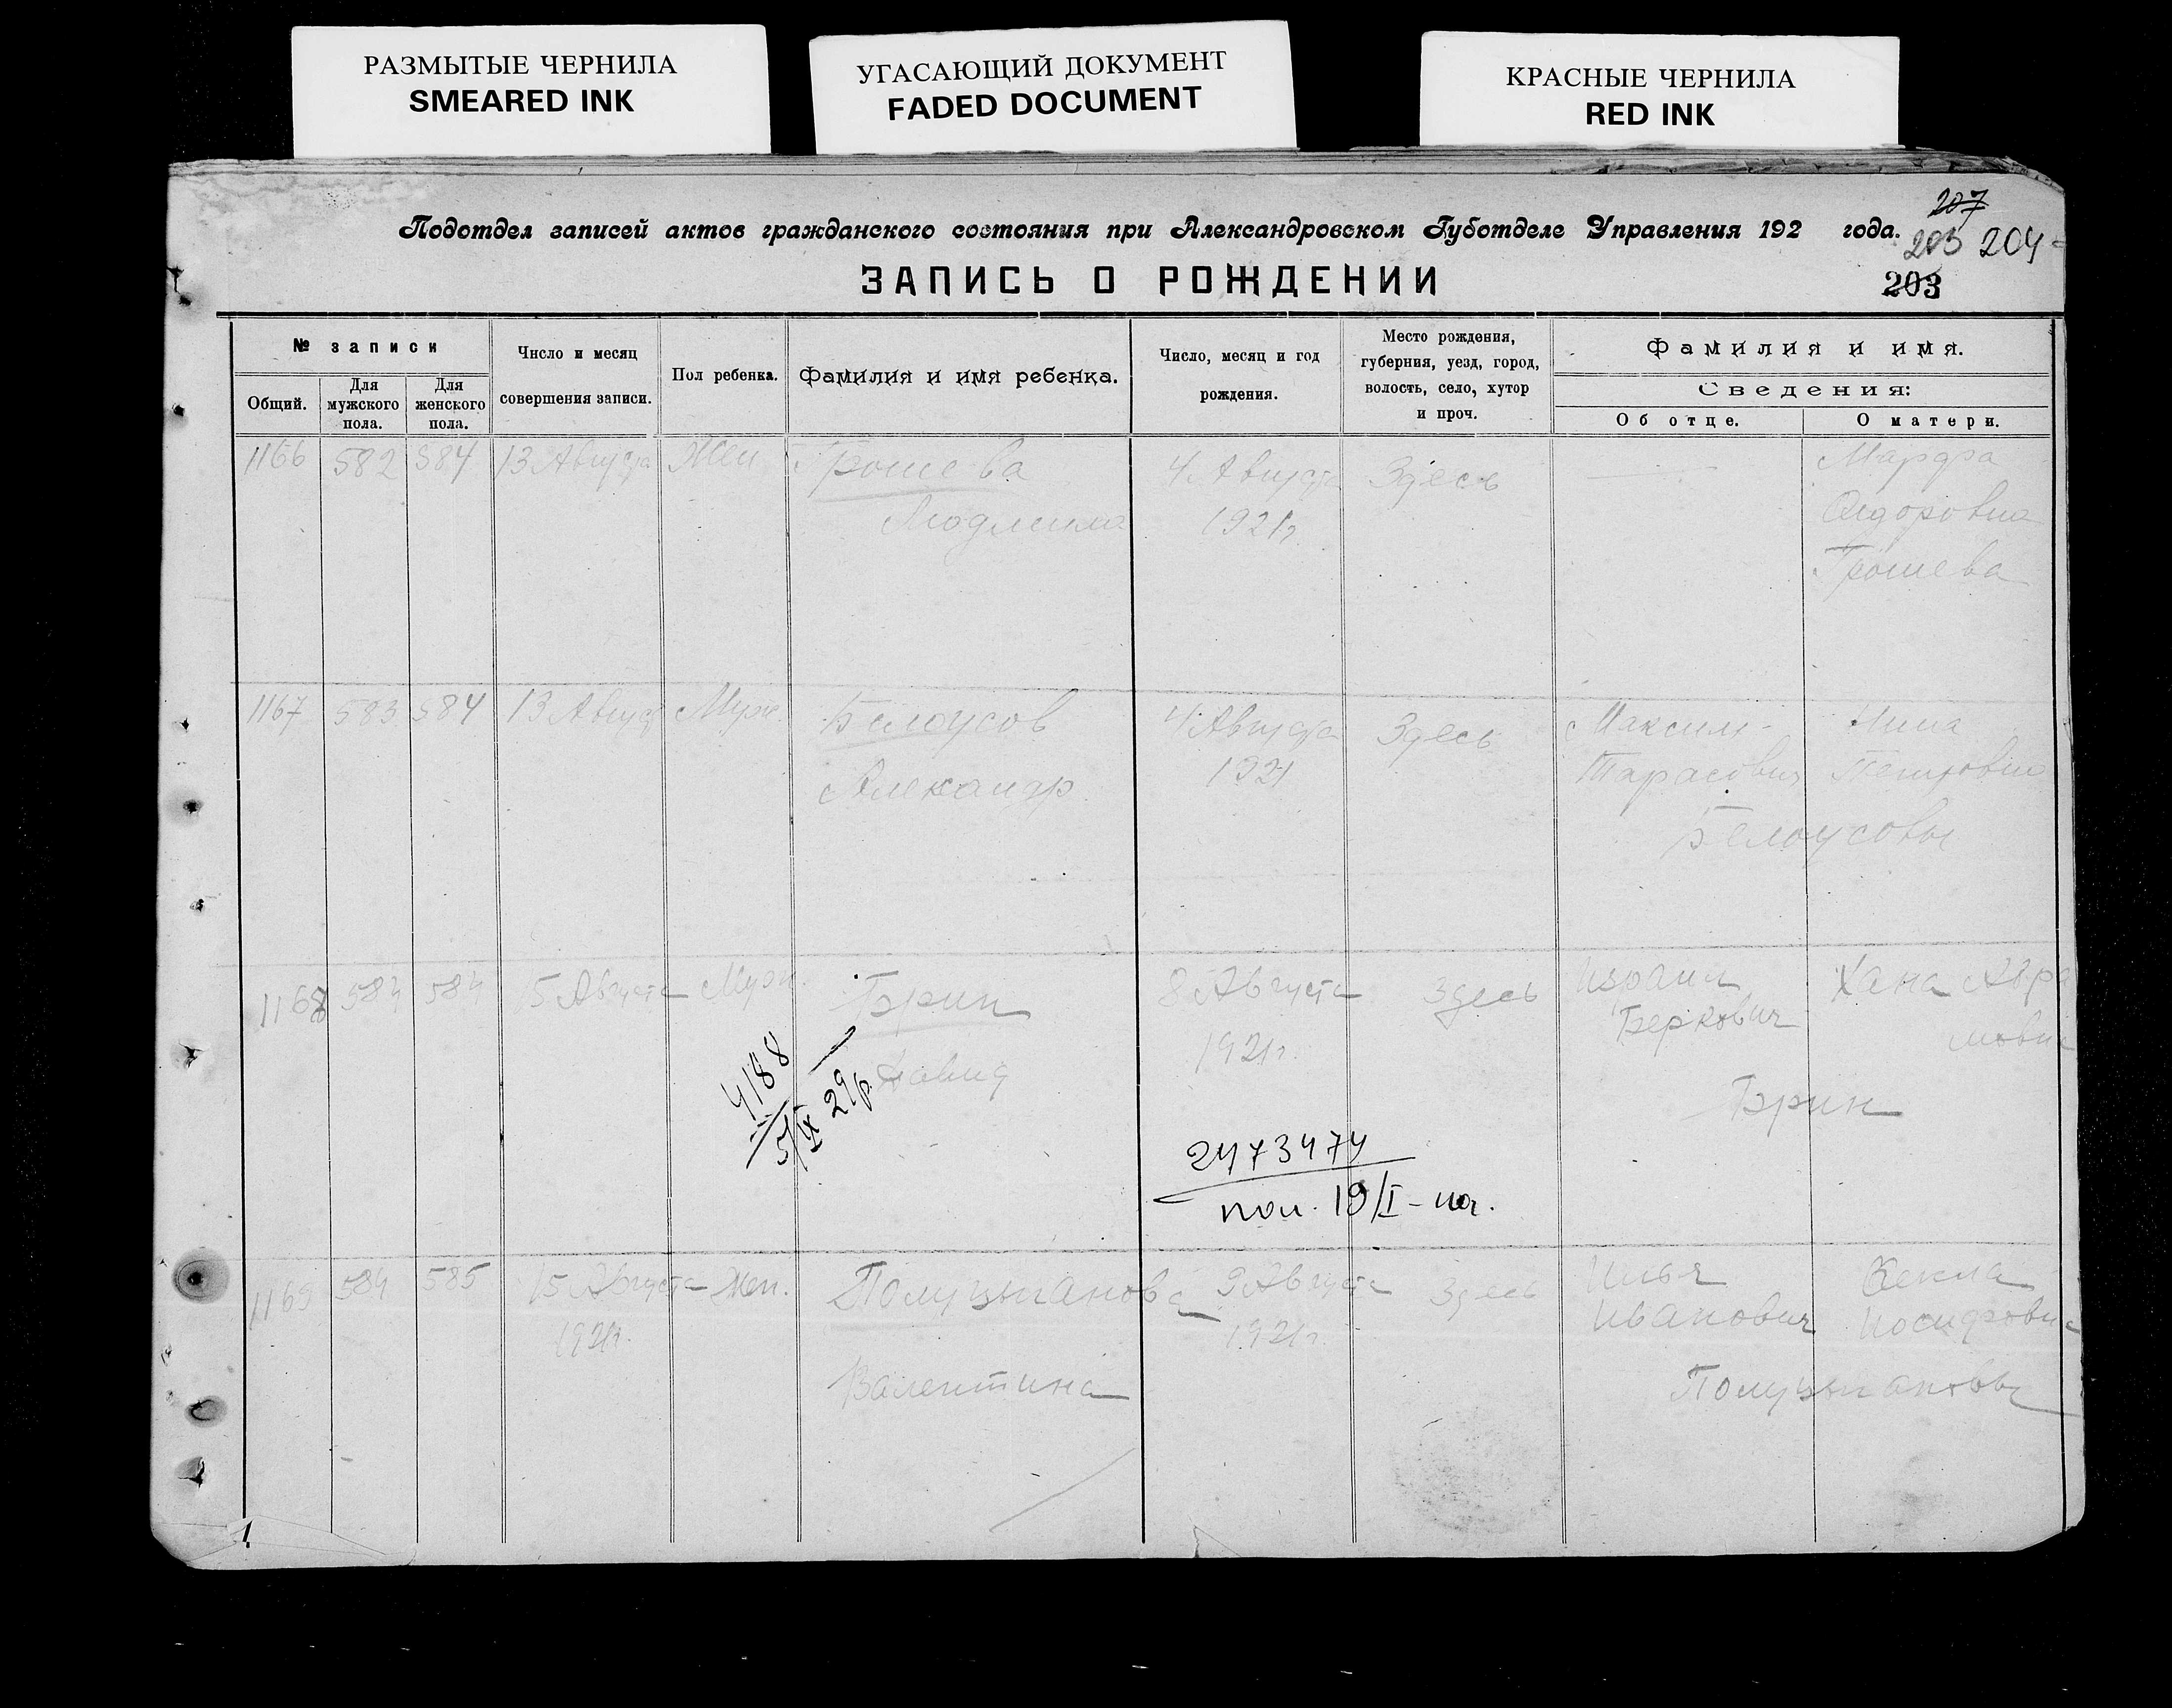 РАЗМЫТЫЕ ЧЕРНИЛА
SMEARED INK
УГАСАЮЩИЙ ДОКУМЕНТ
FADED DOCUMENT
КРАСНЫЕ ЧЕРНИЛА
RED INK
207
Подотдел записей актов гражданского состояния при Александровском Губотделе Управления 192 года.
203 204
ЗАПИСЬ О РОЖДЕНИИ
203
№ записи
Общий.
Для мужского пола.
Для женского пола.
Число и месяц совершения записи.
Пол ребенка.
Фамилия и имя ребенка.
Число, месяц и год рождения.
Место рождения, губерния, уезд, город, волость, село, хутор и проч.
Фамилия и имя.
Сведения:
Об отце.
О матери.
1166 582 584 13 Августа Жен Грошева 4 Августа Здесь — Марфа
Людмила 1921г. Федоровна
Грошева
1167 583 584 13 Август Муж. Белоусов 4 Августа Здесь Максим Нина
Александр 1921 Тарасович Петровна
Белоусовы
1168 584 584 15 Августа Муж. Брин 8 Августа Здесь Израил Хана Авра
Беркович мовна
Давид 1921г.
Брин
4188
5/IX 29р.
2473474
пол. 19/I-
1169 584 585 15 Августа Жен. Полуцыганова 9 Августа Здесь Илья Фекла
1921г. 1921г. Иванович Иосифовна
Валентина Полуцыгановы